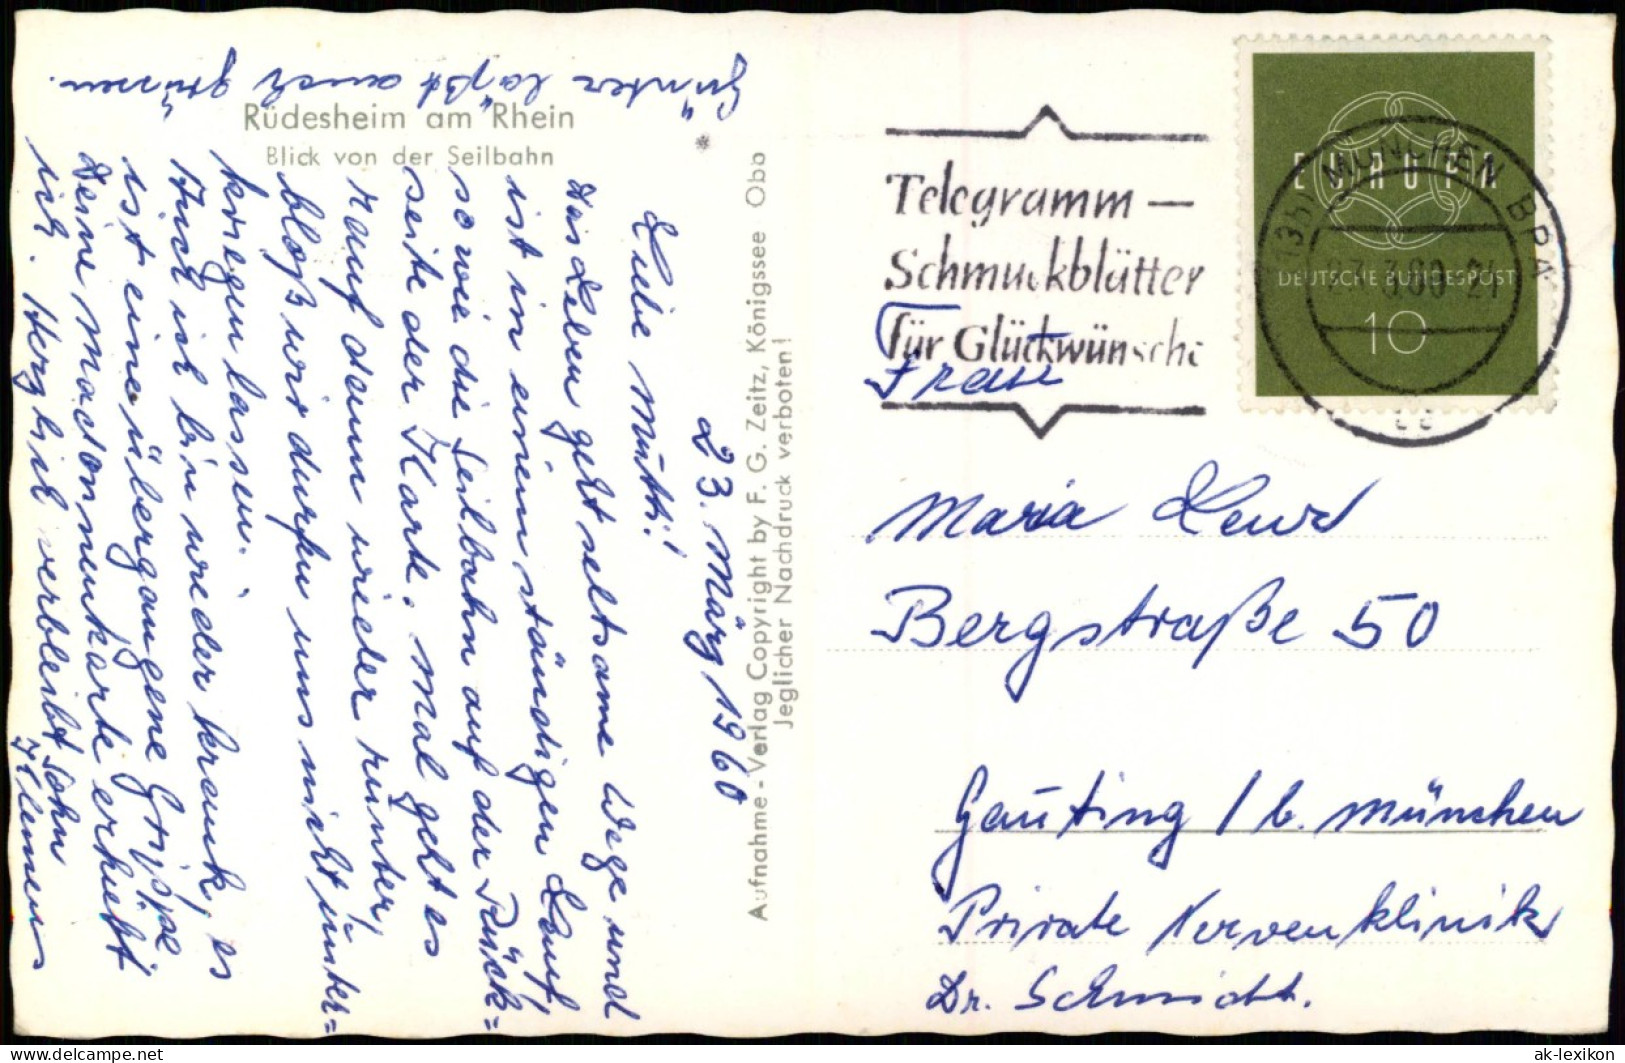 Rüdesheim am Rhein
Blick von der Seilbahn
Aufnahme - Verlag Copyright by F. G. Zeitz, Königssee Obb
Jeglicher Nachdruck verboten!
23. März 1960
Liebe Mutti!
Das Leben geht seltsame Wege und
ist in einem ständigen Lauf,
so wie die Seilbahn auf der Rück=
seite der Karte. Mal geht es
rauf dann wieder runter,
bloß wir dürfen uns nicht unter=
kriegen lassen.
Auch ich bin wieder krank, es
ist eine übergangene Grippe
Deine Madonnenkarte erhielt
ich. Herzlich verbleibt Sohn
Klemens
Günter läßt auch grüssen.
Telegramm —
Schmuckblätter
für Glückwünsche
EUROPA
DEUTSCHE BUNDESPOST
10
(13b) MÜNCHEN BPA
3.60-21
cc
Frau
Maria
Bergstraße 50
Gauting / b. München
Private Nervenklinik
Dr. Schmidt.
ak-lexikon
delcampe.net